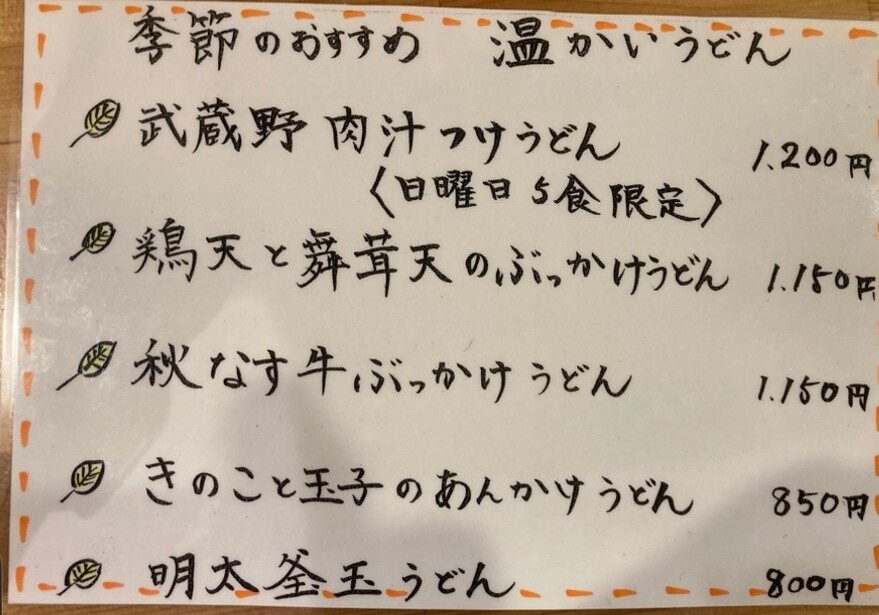 季節のおすすめ 温かいうどん
武蔵野 肉汁つけうどん 1.200円
〈日曜日5食限定〉
鶏天と舞茸天のぶっかけうどん 1.150円
秋なす牛ぶっかけうどん 1.150円
きのこと玉子のあんかけうどん 850円
明太釜玉うどん 800円